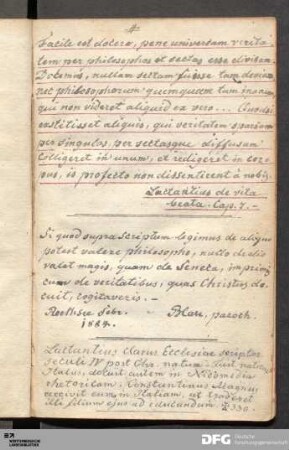 #
Facile est docere, pene universam verita-
tem per philosophos et sectas esse divisam.
Docemus, nullam sectam fuisse tam deviam,
nec philosophorum quemquam tam inanem,
qui non videret aliquid ex vero ... Quodsi
exstitisset aliquis, qui veritatem sparsam
per singulos, per sectasque diffusam
colligeret in unum, et redigeret in cor-
pus, is profecto non dissentiret a nobis.
Lactantius de vita
beata. Cap. 7. –
Si quod supra scriptum legimus de aliquo
potest valere philosopho, nullo dubio
valet magis, quam de Seneca, imprimis
cum de veritatibus, quas Christus do-
cuit, cogitaveris. –
Febr. – Blau, paroch.
1884.
Lactantius clarus Ecclesiae scriptor
seculi IV post Chr. natum. Fuit natione
Italus, docuit autem in Nicomedia
rhetoricam. Constantinus Magnus
vocavit eum in Italiam, ut traderet
illi filium ejus ad educandum. † 330.
DFG Deutsche
Forschungsgemeinschaft